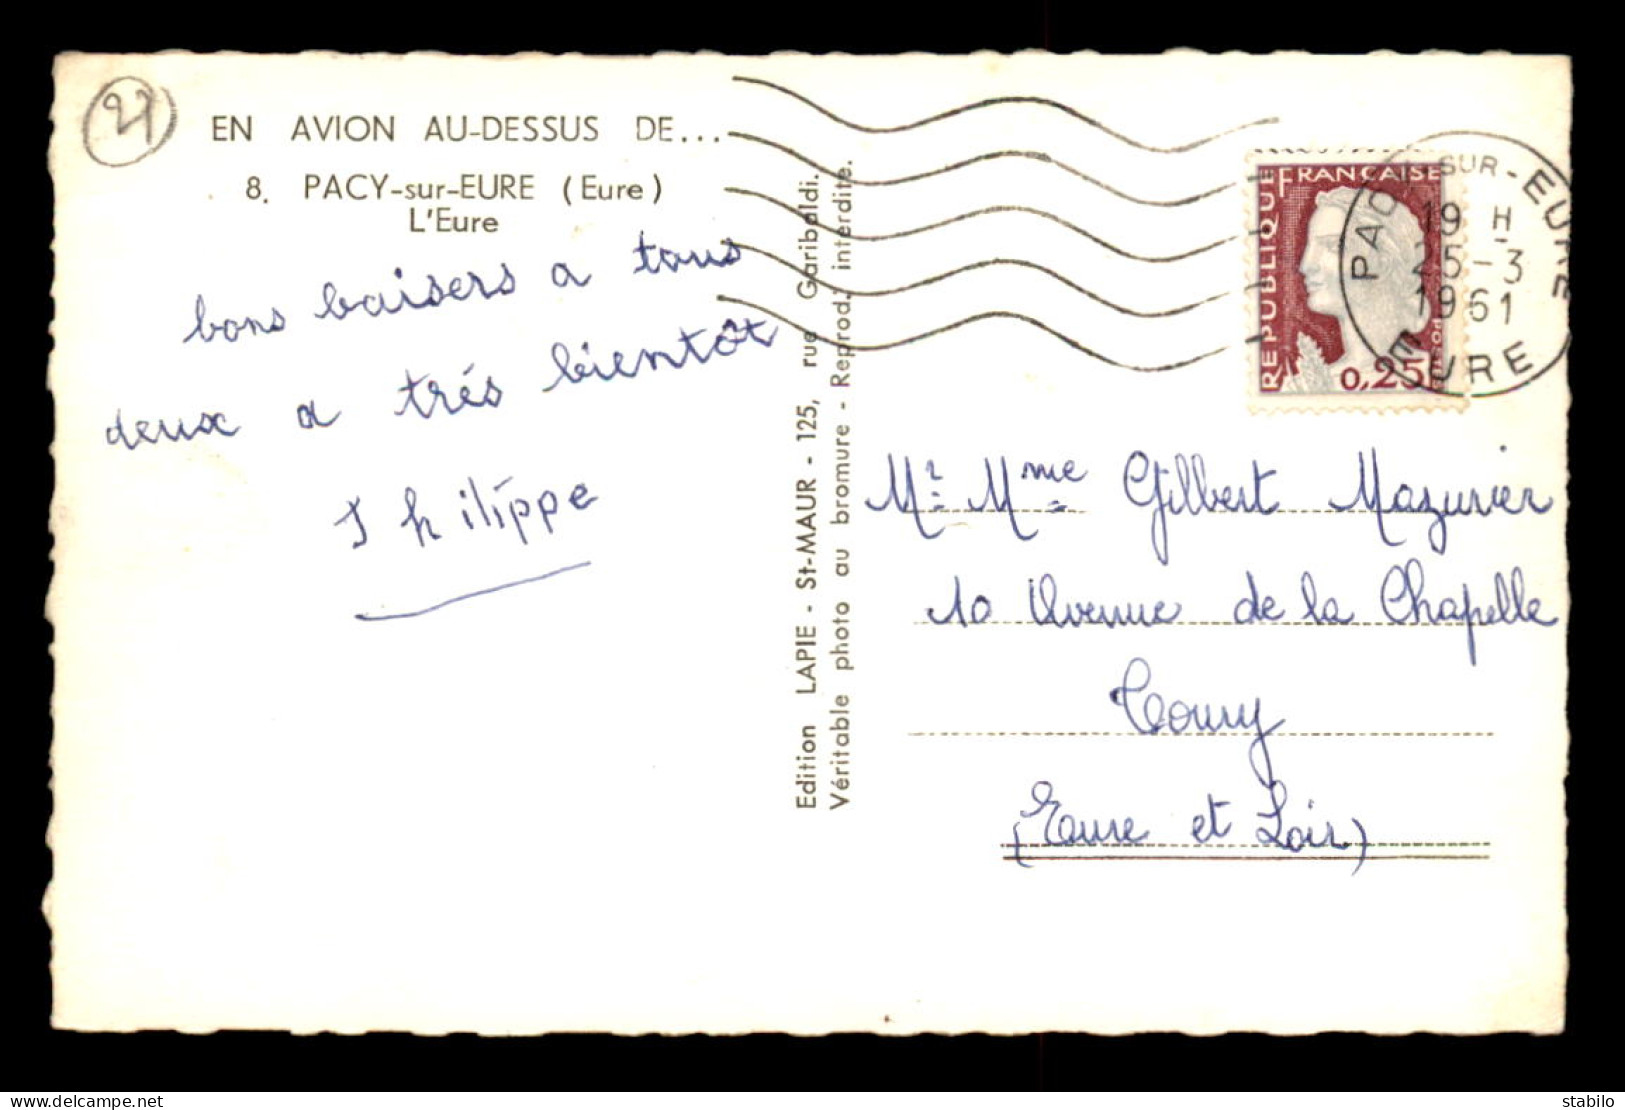 27
EN AVION AU-DESSUS DE...
8. PACY-sur-EURE (Eure)
L'Eure
bons baisers a tous
deux a trés bientôt
Philippe
Edition LAPIE - St-MAUR - 125, rue Garibaldi.
Véritable photo au bromure - Reprod. interdite.
REPUBLIQUE FRANÇAISE
0,25F
PACY-SUR-EURE
19 H
25-3
1961
EURE
Mr Mme Gilbert Mazurier
10 Avenue de la Chapelle
Toury
(Eure et Loir)
delcampe.net
stabilo